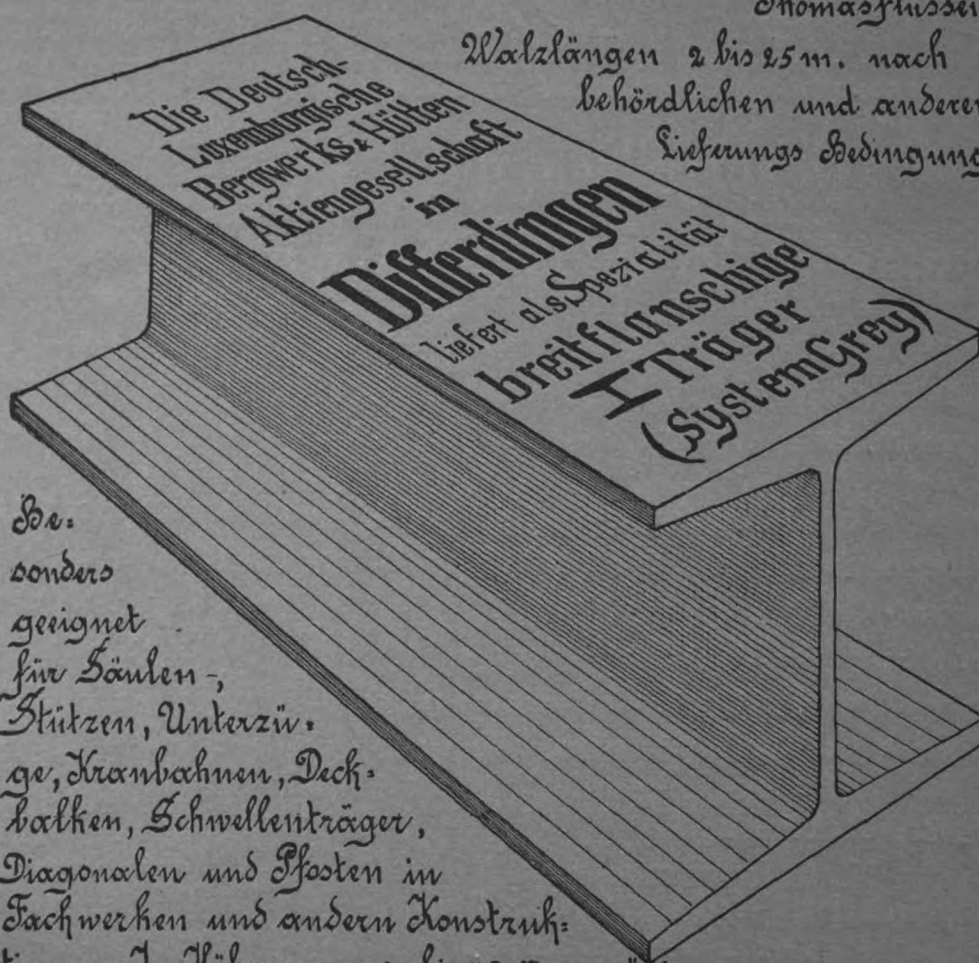 Walzlängen 2 bis 25 m. nach
behördlichen und anderen
Lieferungs Bedingung
Die Deutsch-
Luxemburgische
Bergwerks & Hütten
Aktiengesellschaft
in
Differdingen
liefert als Spezialität
breitflanschige
I Träger
(System Grey)
Be=
sonders
geeignet
für Säulen-,
Stützen, Unterzü=
ge, Kranbahnen, Deck=
balken, Schwellenträger,
Diagonalen und Pfosten in
Fachwerken und andern Konstruk=